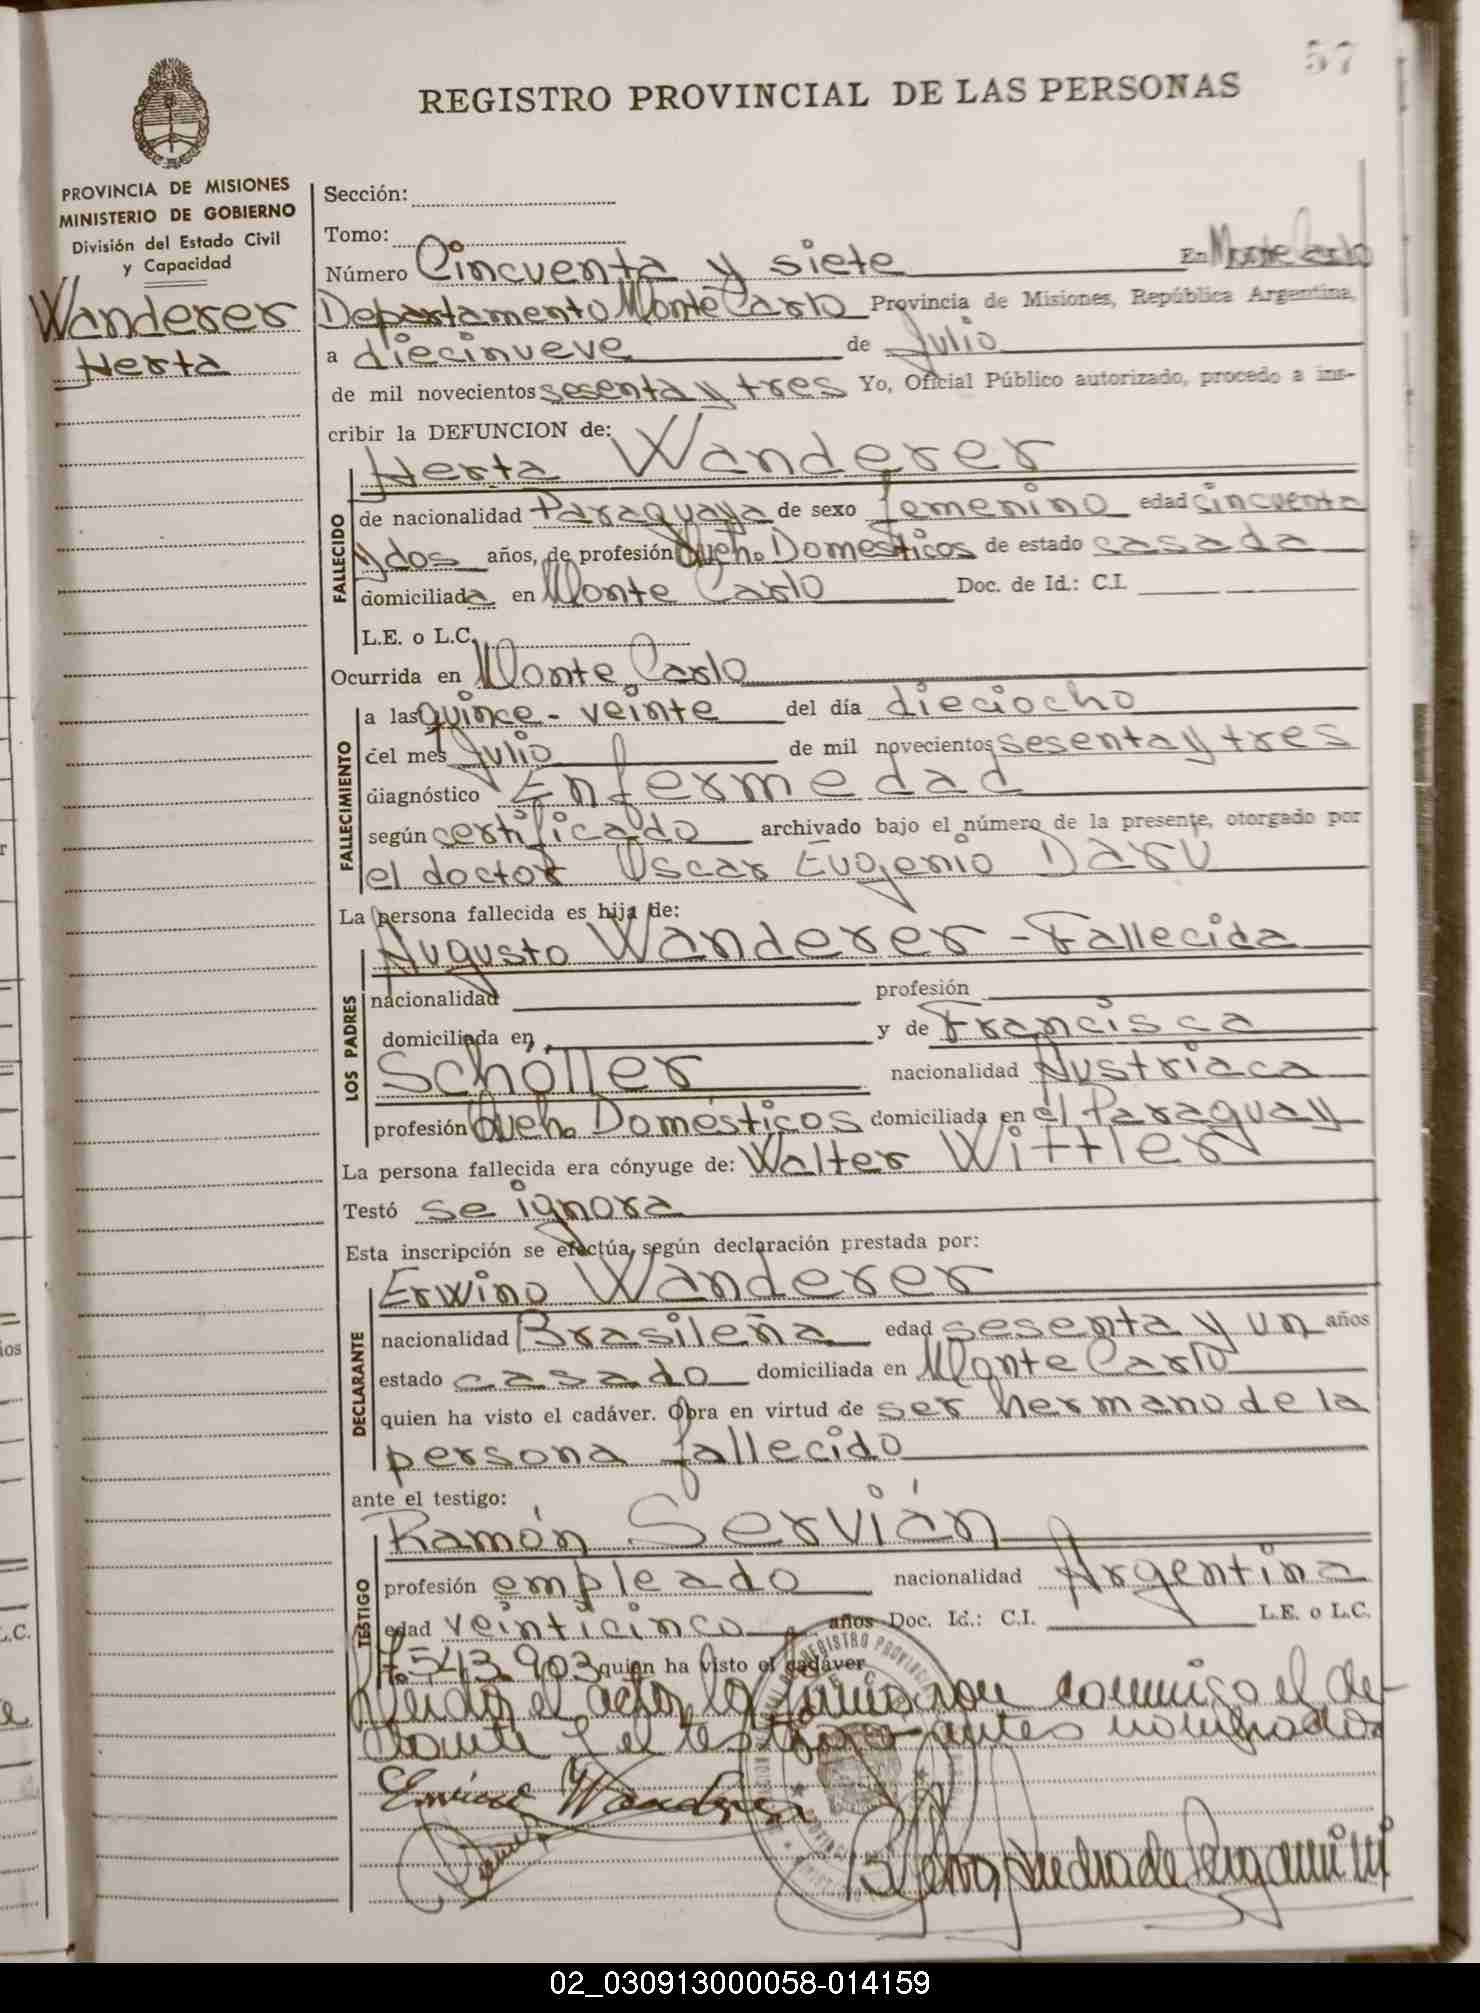 57
REGISTRO PROVINCIAL DE LAS PERSONAS
PROVINCIA DE MISIONES
MINISTERIO DE GOBIERNO
División del Estado Civil
y Capacidad
Wanderer
Herta
Sección:
Tomo:
Número Cincuenta y siete En Monte Carlo
Departamento Monte Carlo Provincia de Misiones, República Argentina,
a diecinueve de Julio
de mil novecientos sesenta y tres Yo, Oficial Público autorizado, procedo a ins-
cribir la DEFUNCION de:
Herta Wanderer
FALLECIDO
de nacionalidad Paraguaya de sexo femenino edad cincuenta
y dos años, de profesión Queh. Domésticos de estado casada
domiciliada en Monte Carlo Doc. de Id.: C.I.
L.E. o L.C.
Ocurrida en Monte Carlo
FALLECIMIENTO
a las quince - veinte del día dieciocho
del mes Julio de mil novecientos sesenta y tres
diagnóstico Enfermedad
según certificado archivado bajo el número de la presente, otorgado por
el doctor Oscar Eugenio Daru
La persona fallecida es hija de:
LOS PADRES
Augusto Wanderer - Fallecida
nacionalidad profesión
domiciliada en y de Francisca
Schöller nacionalidad Austriaca
profesión Queh. Domésticos domiciliada en el Paraguay
La persona fallecida era cónyuge de: Walter Wittler
Testó se ignora
Esta inscripción se efectúa según declaración prestada por:
DECLARANTE
Erwino Wanderer
nacionalidad Brasileña edad sesenta y un años
estado casado domiciliada en Monte Carlo
quien ha visto el cadáver. Obra en virtud de ser hermano de la
persona fallecido
ante el testigo:
TESTIGO
Ramón Servián
profesión empleado nacionalidad Argentina
edad veinticinco años Doc. Id.: C.I. L.E. o L.C.
7.543.903 quien ha visto el cadáver
Leida el acta, la firmaron conmigo el de-
clarante y el testigo antes nombrados
Wanderer
REGISTRO PROVINCIAL
02_030913000058-014159